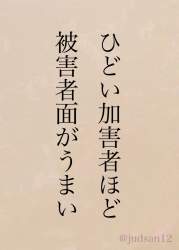 ひどい加害者ほど
被害者面がうまい
@judsan12